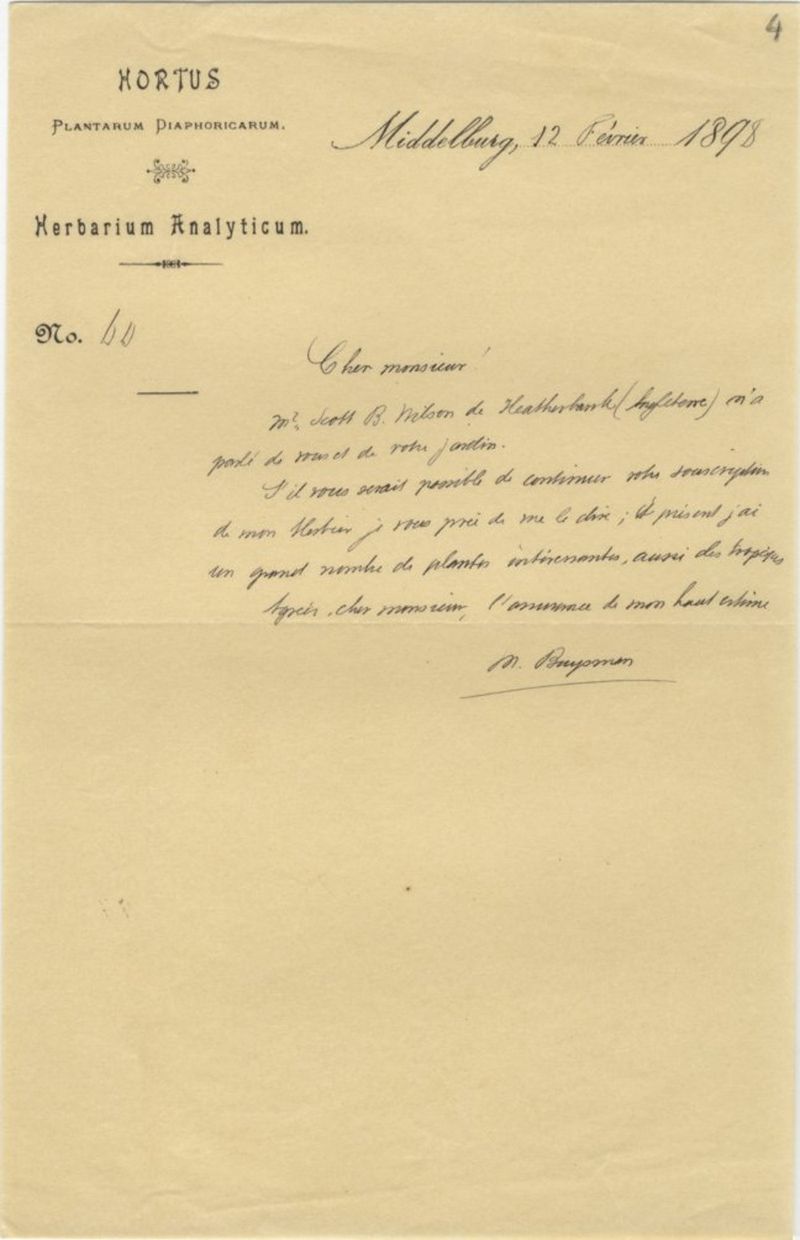 4
HORTUS
PLANTARUM DIAPHORICARUM.
Middelburg, 12 Février 1898
Herbarium Analyticum.
No. 60
Cher monsieur!
Mr. Scott B. Wilson de Heatherbank (Angleterre) m'a
parlé de vous et de votre jardin.
S'il vous serait possible de continuer votre souscription
de mon Herbier je vous prie de me le dire; à présent j'ai
un grand nombre de plantes intéressantes, aussi des tropiques
Agréez, cher monsieur, l'assurance de mon haut estime
M. Buysman